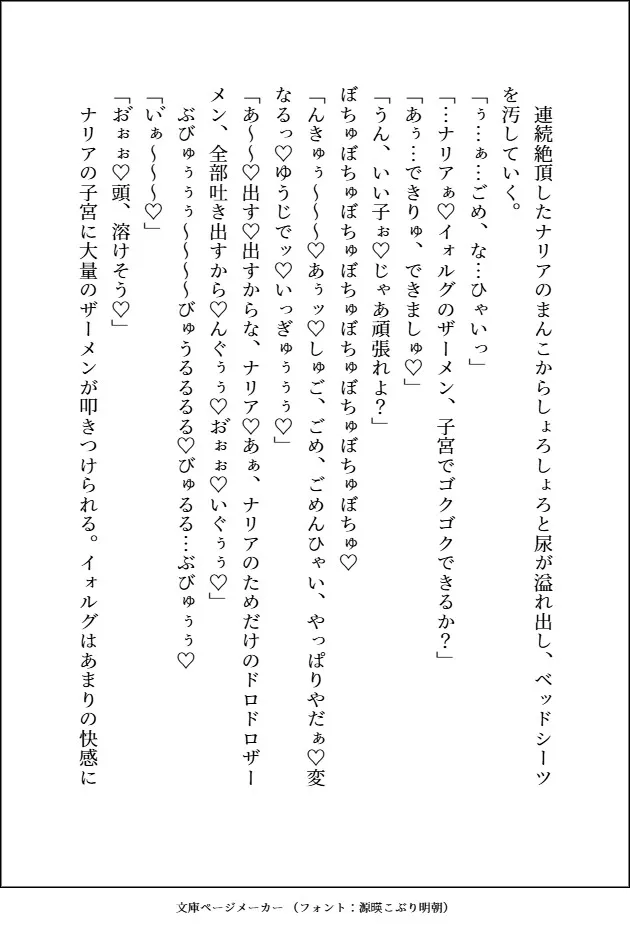 連続絶頂したナリアのまんこからしょろしょろと尿が溢れ出し、ベッドシーツ
を汚していく。
「ぅ…ぁ…ごめ、な…ひゃいっ」
「…ナリアぁ♡イォルグのザーメン、子宮でゴクゴクできるか？」
「あぅ…できりゅ、できましゅ♡」
「うん、いい子ぉ♡じゃあ頑張れよ？」
ぼちゅぼちゅぼちゅぼちゅぼちゅぼちゅぼちゅぼちゅ♡
「んきゅぅ～～～♡あぅッ♡しゅご、ごめ、ごめんひゃい、やっぱりやだぁ♡変
なるっ♡ゆうじでッ♡いっぎゅぅぅぅ♡」
「あ～～♡出す♡出すからな、ナリア♡あぁ、ナリアのためだけのドロドロザー
メン、全部吐き出すから♡んぐぅぅ♡お゛ぉぉ♡いぐぅぅ♡」
ぶびゅぅぅぅ～～～～びゅうるるるる♡びゅるる…ぶびゅぅぅ♡
「い゛ぁ～～～♡」
「お゛ぉぉ♡頭、溶けそう♡」
ナリアの子宮に大量のザーメンが叩きつけられる。イォルグはあまりの快感に
文庫ページメーカー（フォント：源暎こぶり明朝）